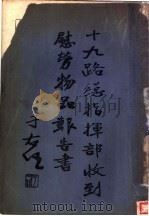 十九路總指揮部收到
慰勞物品報告書